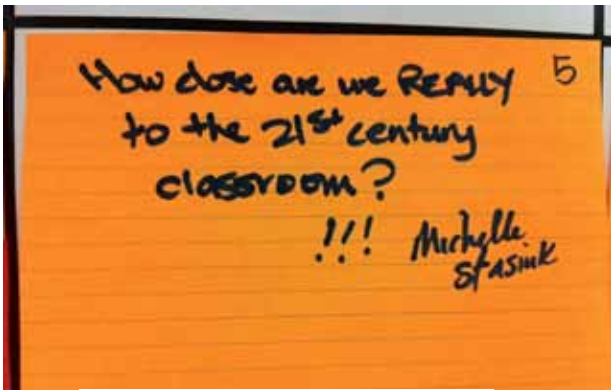 How close are we REALLY 5
to the 21st century
classroom?
!!! Michelle
Stasiuk